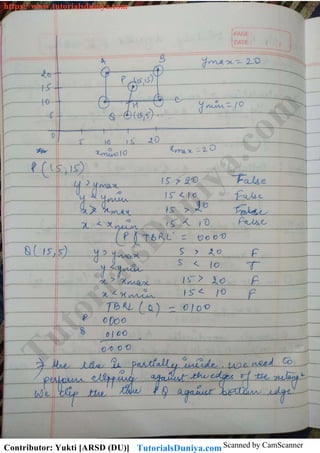 https://www.tutorialsduniya.com
PAGE
DATE
A B
ymax = 20
20
15 P (15,15)
10 H C ymin = 10
5 Q (15,5)
0
5 10 15 20
xmin=10 xmax=20
P(15,15)
y > ymax 15 > 20 False
y < ymin 15 < 10 False
x > xmax 15 > 20 False
x < xmin 15 < 10 False
(P) TBRL = 0000
Q(15,5) y > ymax 5 > 20 F
y < ymin 5 < 10 T
x > xmax 15 > 20 F
x < xmin 15 < 10 F
TBRL (Q) = 0100
P 0000
Q 0100
0000
⇒ the line is partially inside. we need to
perform clipping against the edges of the rectang
We clip the line PQ against bottom edge.
TutorialsDuniya.com
Contributor: Yukti [ARSD (DU)] TutorialsDuniya.com Scanned by CamScanner